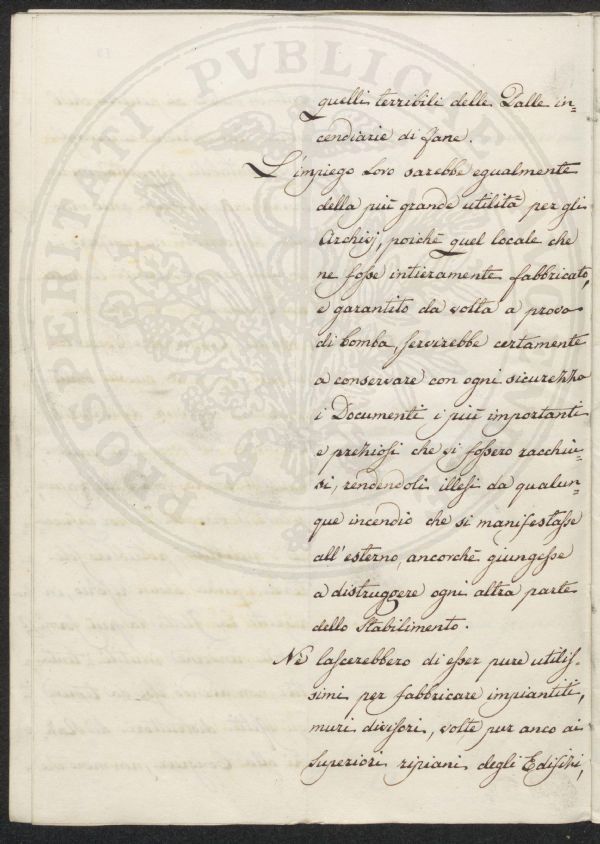 PROSPERITATI PVBLICAE
quelli terribili delle Palle in=
cendiarie di fane.
L'impiego Loro sarebbe egualmente
della più grande utilità per gli
Archivj, poichè quel locale che
ne fosse intieramente fabbricato,
e garantito da volta a prova
di bomba, servirebbe certamente
a conservare con ogni sicurezza
i Documenti i più importanti
e preziosi che vi fossero racchiu=
si, rendendoli illesi da qualun=
que incendio che si manifestasse
all'esterno, ancorchè giungesse
a distruggere ogni altra parte
dello Stabilimento.
Nè lascerebbero di esser pure utilis=
simi per fabbricare impiantiti,
muri divisori, volte pur anco ai
superiori ripiani degli Edifizi,